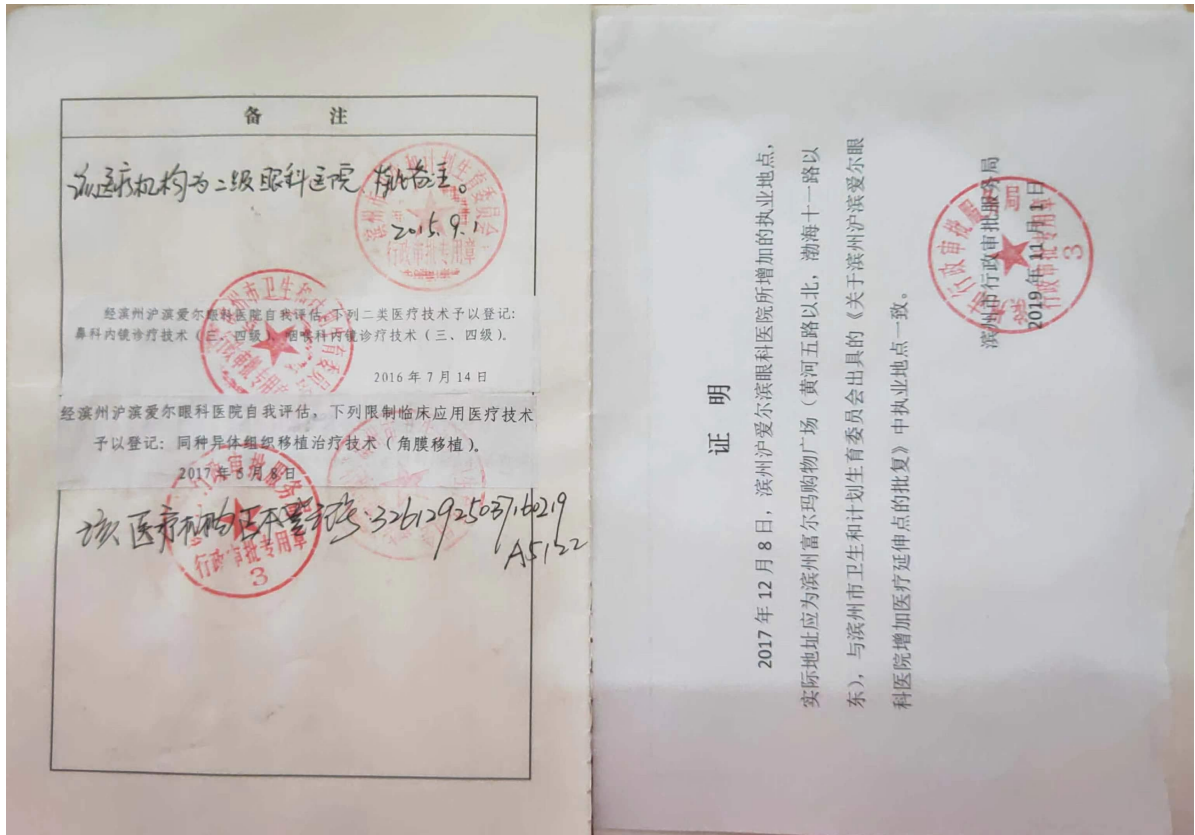 备 注
该医疗机构为二级眼科医院,特此备注。
2015.9.1
行政审批专用章
经滨州沪滨爱尔眼科医院自我评估,下列二类医疗技术予以登记:
鼻科内镜诊疗技术(三、四级)、咽喉科内镜诊疗技术(三、四级)。
2016年7月14日
经滨州沪滨爱尔眼科医院自我评估,下列限制临床应用医疗技术
予以登记:同种异体组织移植治疗技术(角膜移植)。
2017年8月8日
该医疗机构正本登记号:32612925037160219
A5122
行政审批专用章
3
证 明
2017年12月8日,滨州沪爱尔滨眼科医院所增加的执业地点,
实际地址应为滨州富尔玛购物广场(黄河五路以北,渤海十一路以
东),与滨州市卫生和计划生育委员会出具的《关于滨州沪滨爱尔眼
科医院增加医疗延伸点的批复》中执业地点一致。
滨州市行政审批服务局
2019年11月1日
行政审批专用章
3